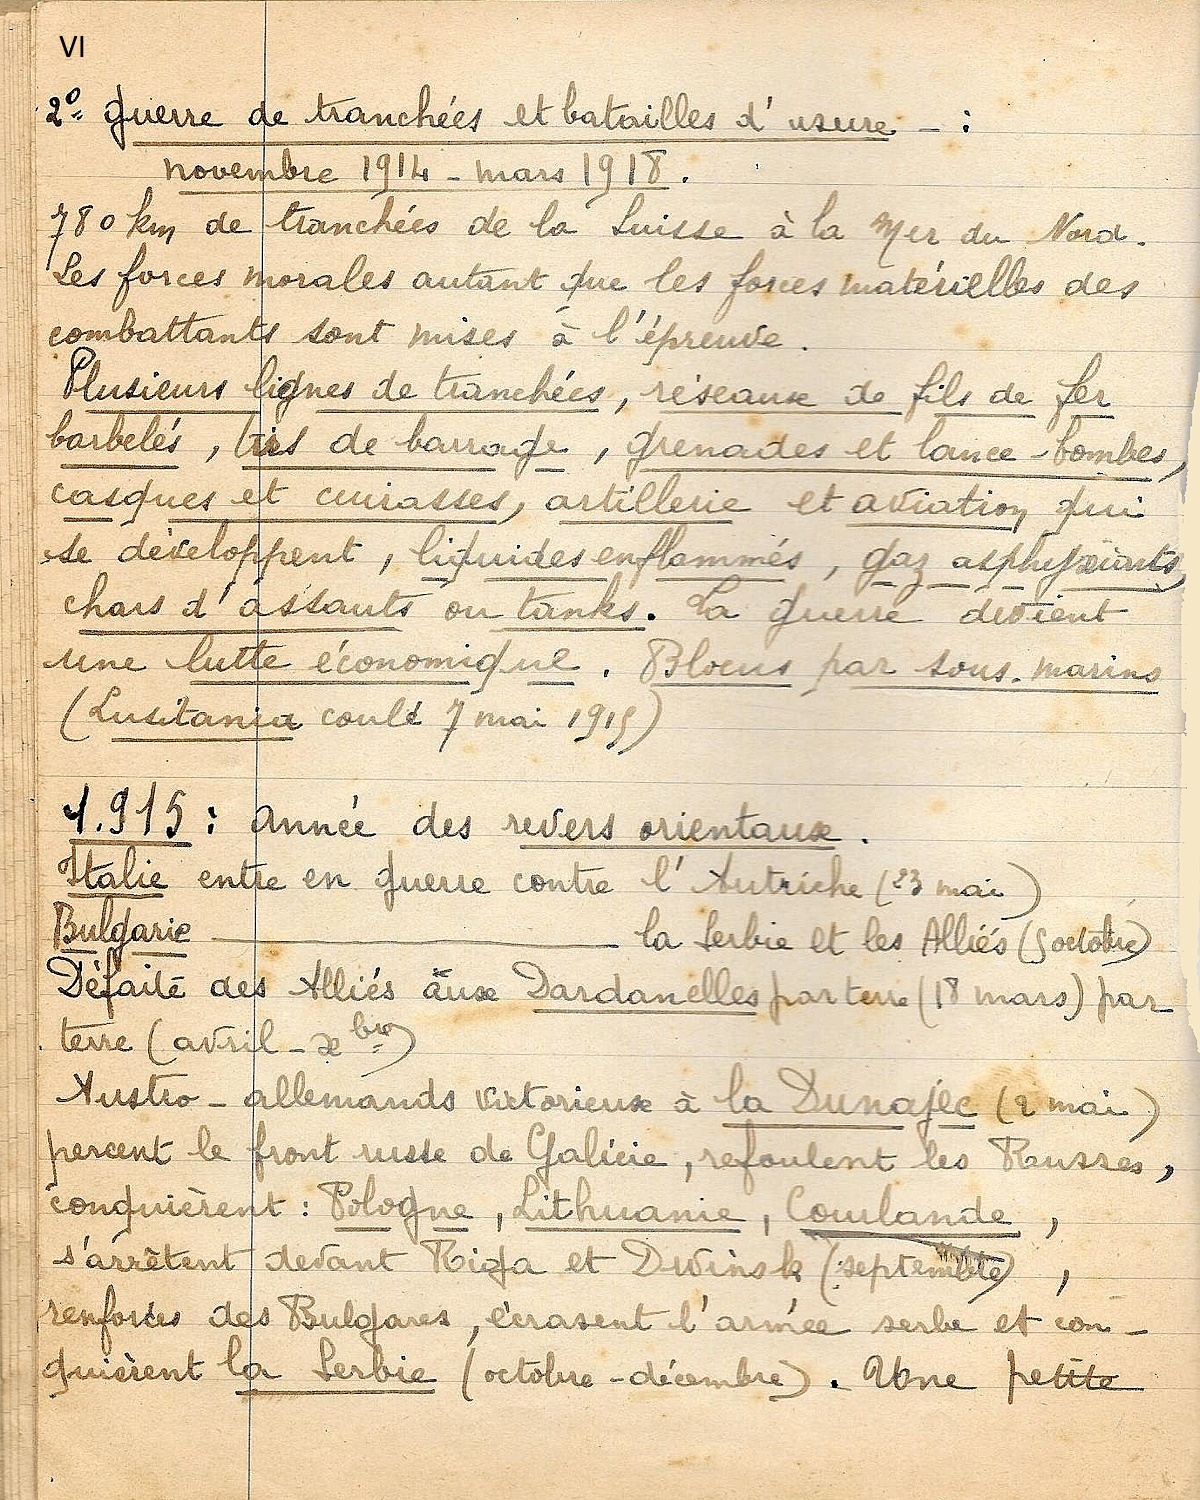 VI
2º guerre de tranchées et batailles d'usure - :
novembre 1914 - mars 1918.
780 km de tranchées de la Suisse à la Mer du Nord.
Les forces morales autant que les forces matérielles des
combattants sont mises à l'épreuve.
Plusieurs lignes de tranchées, réseaux de fils de fer
barbelés, tirs de barrage, grenades et lance-bombes,
casques et cuirasses, artillerie et aviation qui
se développent, liquides enflammés, gaz asphyxiants,
chars d'assauts ou tanks. La guerre devient
une lutte économique. Blocus par sous-marins
(Lusitania coulé 7 mai 1915)
1.915 : année des revers orientaux.
Italie entre en guerre contre l'Autriche (23 mai)
Bulgarie ——— la Serbie et les Alliés (5 octobre)
Défaite des Alliés aux Dardanelles par terre (18 mars) par
terre (avril - xbre)
Austro-allemands victorieux à la Dunajec (2 mai)
percent le front russe de Galicie, refoulent les Russes,
conquièrent : Pologne, Lithuanie, Courlande,
s'arrêtent devant Riga et Dwinsk (septembre),
renforcés des Bulgares, écrasent l'armée serbe et con-
quièrent la Serbie (octobre-décembre). Une petite